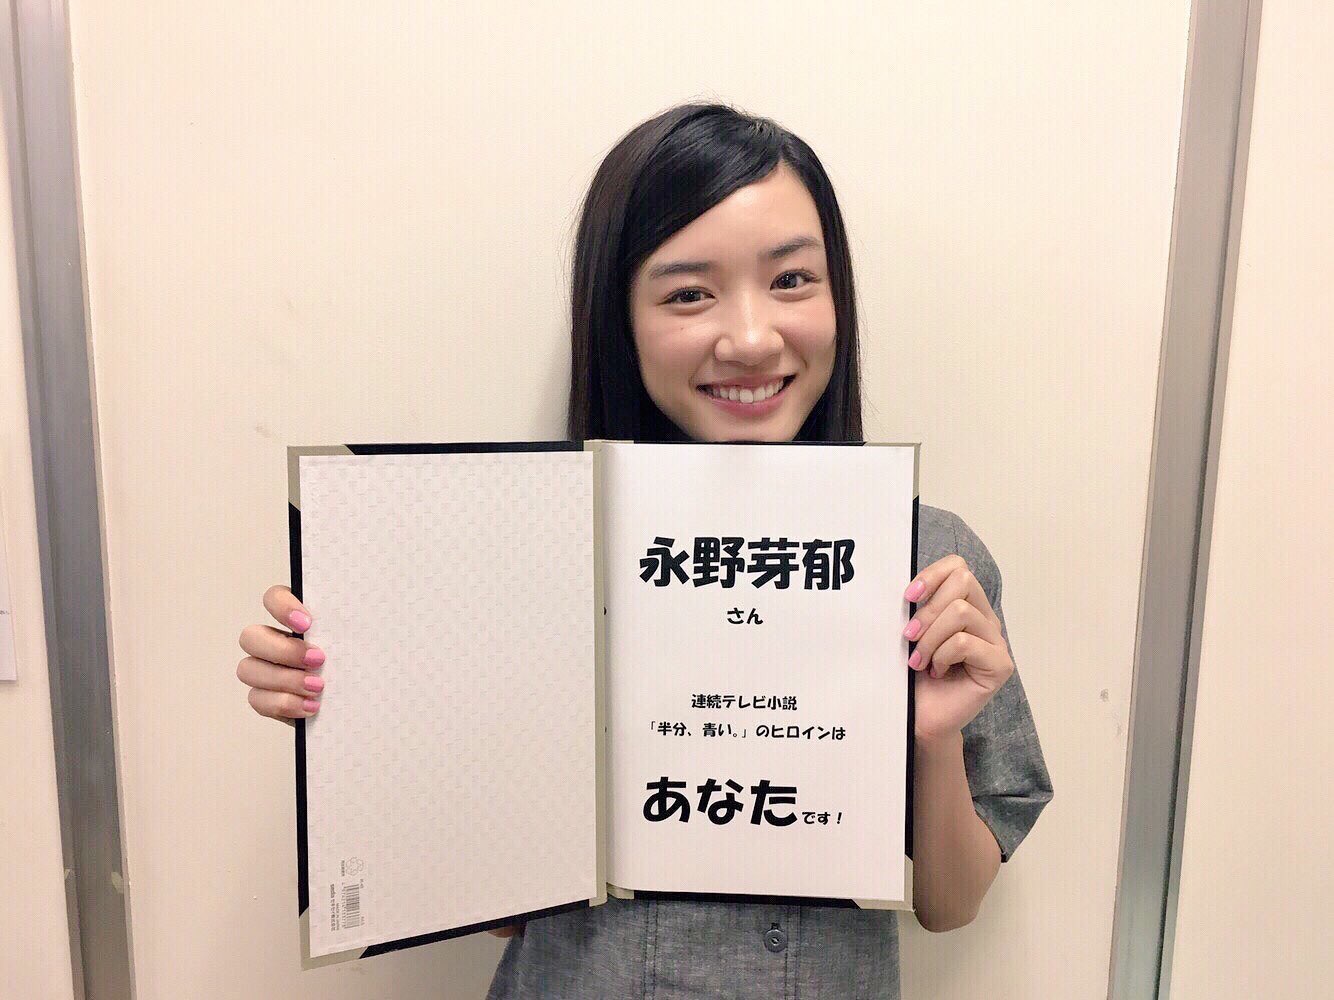 永野芽郁
さん
連続テレビ小説
「半分、青い。」のヒロインは
あなたです！